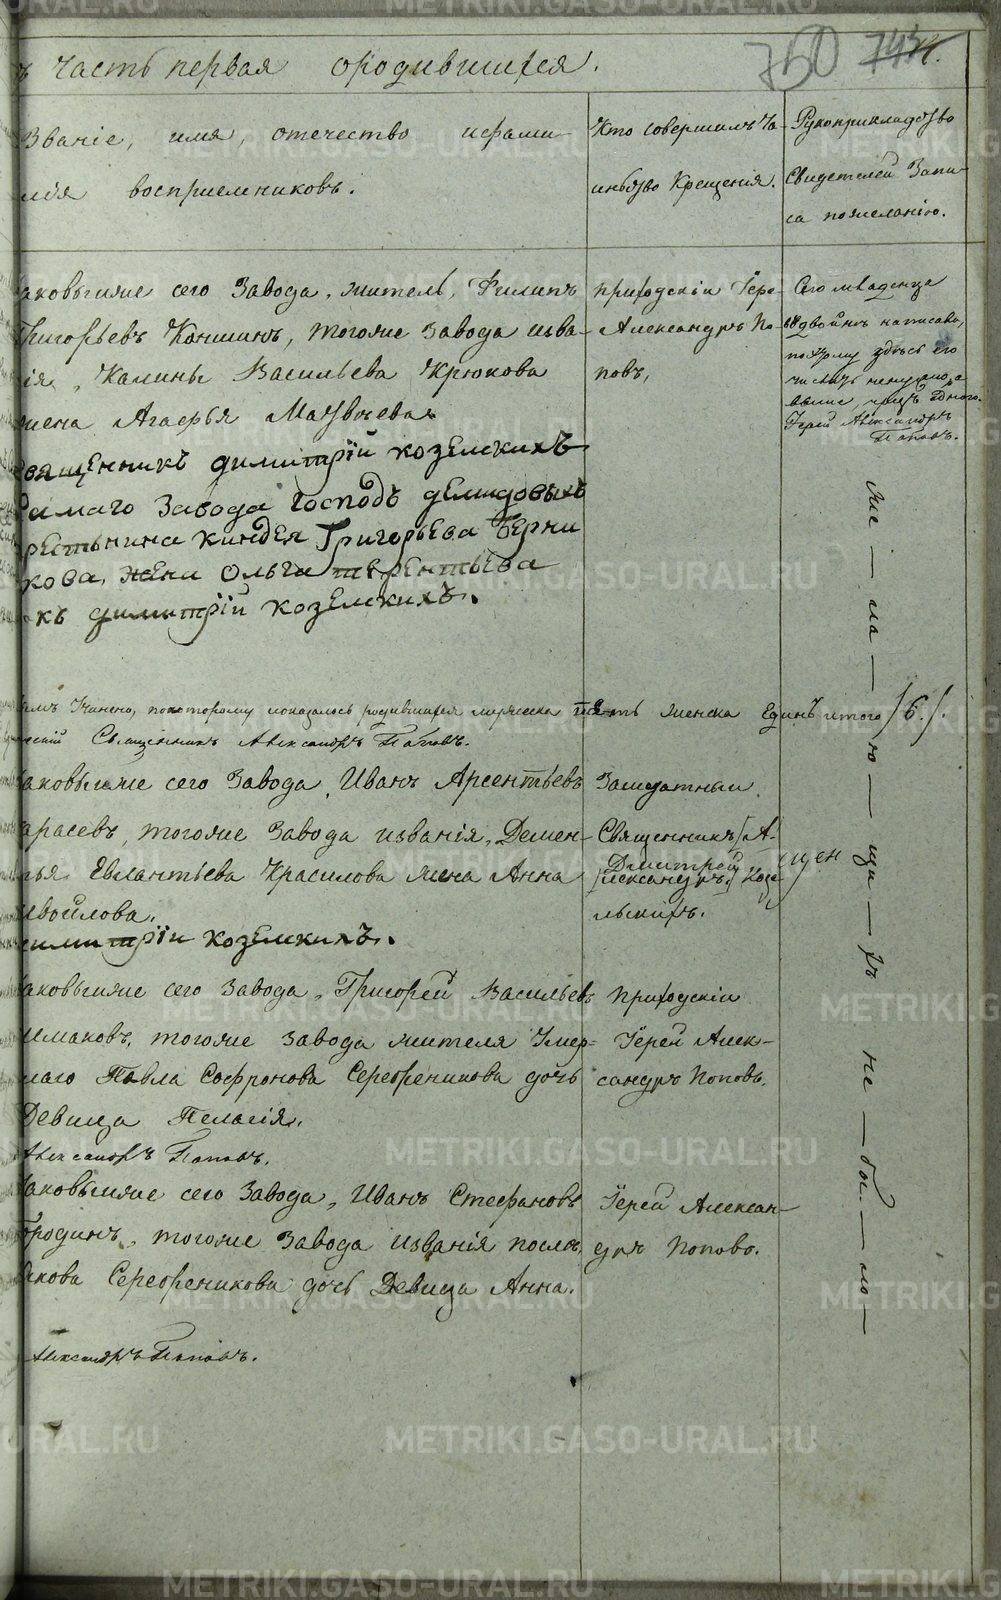 Часть первая ородившихся.
750
Званіе, имя, отечество ифами-
лія восприемниковъ.
Кто совершилъ Та-
инство Крещенія.
Рукоприкладство
Свидетелей Запи-
си пожеланію.
аковыеже сего Завода, житель, Филипъ
Григорьевъ Каншинъ, тогоже Завода изва-
нія, Калины Васильева Крюкова
жена Агафья Матвѣева
Священникъ димитрій козелскихъ
Завода Господъ демидовыхъ
крестьнина Григорьева Берни
кова, жена Ольга терентьева
къ димитрій козелскихъ.
приходскіи Іере
Александръ По-
повъ,
Сего младенца
написано,
поэтому здѣсь его
числить
выше,
Іерей Александръ
Поповъ.
Учинено, покоторому показалось родившихся мужеска женска Единъ итого /6./.
Священникъ Александръ Поповъ.
аковыеже сего Завода, Иванъ Арсентьевъ
арасевъ, тогоже Завода изванія, Демен-
тья Евлантьева Красилова жена Анна
Самойлова.
димитріи козелскихъ.
Зашдатныи
Священникъ /А-
Дмитрей
лександръ/ Козе
льскихъ.
аковыеже сего Завода, Григорей Васильевъ
имаковъ, тогоже Завода жителя Умер-
шаго Павла Софронова Серебреникова дочь
Девица Пелагія.
Александръ Поповъ.
Приходскіи
Іерей Алек-
сандръ Поповъ.
аковыеже сего Завода, Иванъ Стефановъ
бродинъ, тогоже Завода изванія
Серебреникова дочь Девица Анна.
Александръ Поповъ.
Іерей Алексан-
дръ Поповъ.
же — ла — ю — щи — хъ не — бы — ло —
METRIKI.GASO-URAL.RU